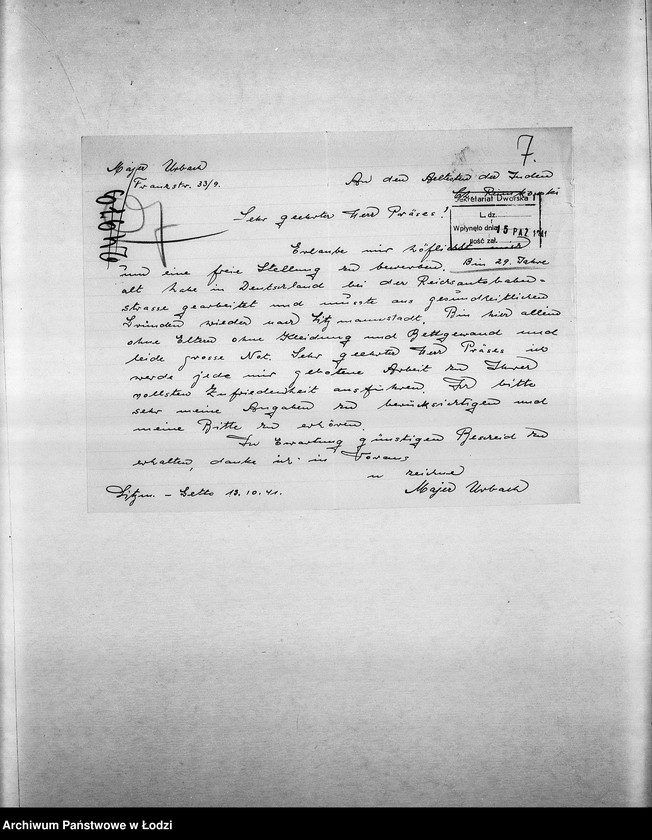 7.
Majer Urbach
Franzstr. 33/9.
An den Aeltesten der Juden
Ch. Rumkowski
Sekretariat Dworska 1
L. dz.
Wpłynęło dnia 15 PAZ 1941
Ilość zał.
Sehr geehrter Herr Präses!
Erlaube mir höflichst mich
um eine freie Stellung zu bewerben. Bin 29. Jahre
alt habe in Deutschland bei der Reichsautobahn-
strasse gearbeitet und müsste aus gesundheitlichen
Gründen wieder nach Litzmannstadt. Bin hier allein
ohne Eltern ohne Kleidung und Bettgewand und
leide grosse Not. Sehr geehrter Herr Präses ich
werde jede mir gebotene Arbeit zu Ihrer
vollsten Zufriedenheit ausführen. Ich bitte
sehr meine Angaben zu berücksichtigen und
meine Bitte zu erhören.
In Erwartung günstigen Bescheid zu
erhalten, danke ich in Voraus
u zeichne
Litzm. - Getto 13.10.41.
Majer Urbach
Archiwum Państwowe w Łodzi